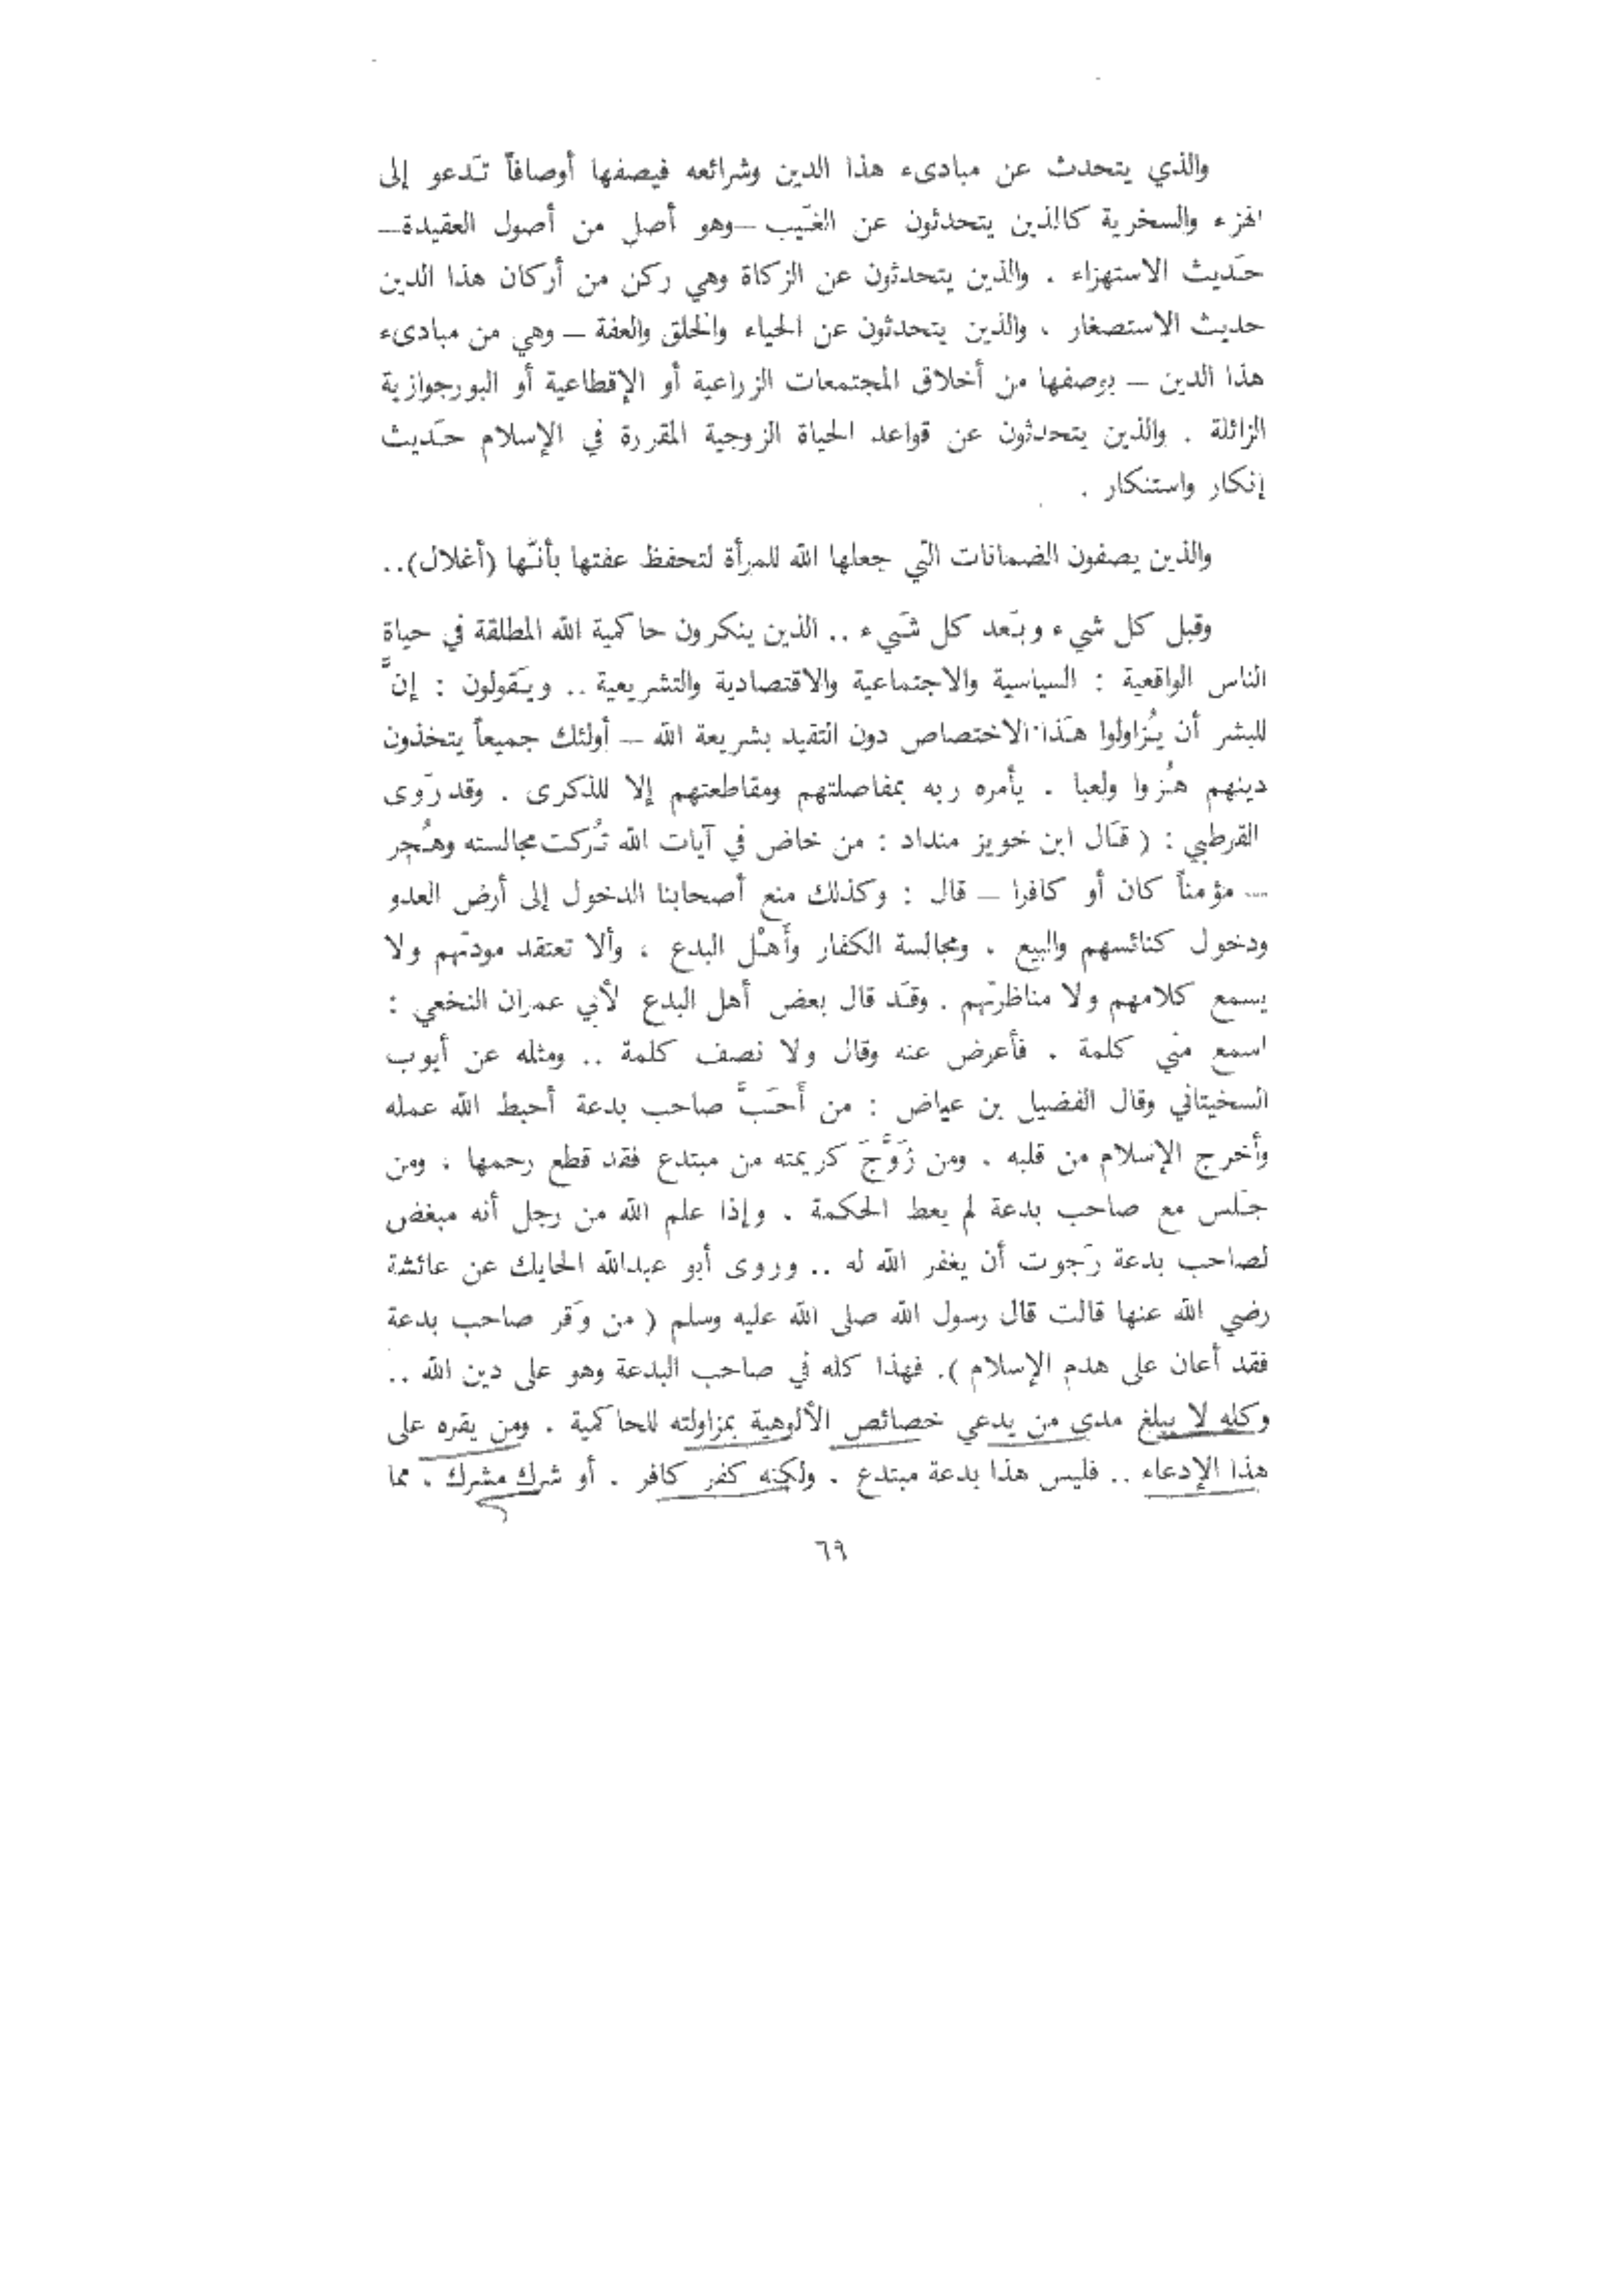 والذي يتحدث عن مبادىء هذا الدين وشرائعه فيصفها أوصافاً تَدعو إلى
الهزء والسخرية كالذين يتحدثون عن الغَيب —وهو أصل من أصول العقيدة—
حَديث الاستهزاء . والذين يتحدثون عن الزكاة وهي ركن من أركان هذا الدين
حديث الاستصغار ، والذين يتحدثون عن الحياء والخلق والعفة — وهي من مبادىء
هذا الدين — بوصفها من أخلاق المجتمعات الزراعية أو الإقطاعية أو البورجوازية
الزائلة . والذين يتحدثون عن قواعد الحياة الزوجية المقررة في الإسلام حَديث
إنكار واستنكار .
والذين يصفون الضمانات التي جعلها الله للمرأة لتحفظ عفتها بأنَّها (أغلال)..
وقبل كل شيء وبَعد كل شَيء .. الذين ينكرون حاكمية الله المطلقة في حياة
الناس الواقعية : السياسية والاجتماعية والاقتصادية والتشريعية .. ويَقولون : إنَّ
للبشر أن يُزاولوا هَذا الاختصاص دون التقيد بشريعة الله — أولئك جميعاً يتخذون
دينهم هُزوا ولعبا . يأمره ربه بمفاصلتهم ومقاطعتهم إلا للذكرى . وقد رَوى
القرطبي : ( قَال ابن خويز منداد : من خاض في آيات الله تُركت مجالسته وهُجر
— مؤمناً كان أو كافرا — قال : وكذلك منع أصحابنا الدخول إلى أرض العدو
ودخول كنائسهم والبيع . ومجالسة الكفار وأَهْل البدع ، وألا تعتقد مودتهم ولا
يسمع كلامهم ولا مناظرتهم . وقَد قال بعض أهل البدع لأبي عمران النخعي :
اسمع مني كلمة . فأعرض عنه وقال ولا نصف كلمة .. ومثله عن أيوب
السختياني وقال الفضيل بن عياض : من أَحَبَّ صاحب بدعة أحبط الله عمله
وأخرج الإسلام من قلبه . ومن زَوَّجَ كريمته من مبتدع فقد قطع رحمها ، ومن
جَلس مع صاحب بدعة لم يعط الحكمة . وإذا علم الله من رجل أنه مبغض
لصاحب بدعة رَجوت أن يغفر الله له .. وروى أبو عبدالله الحايك عن عائشة
رضي الله عنها قالت قال رسول الله صلى الله عليه وسلم ( من وَقر صاحب بدعة
فقد أعان على هدم الإسلام ). فهذا كله في صاحب البدعة وهو على دين الله ..
وكله لا يبلغ مدى من يدعي خصائص الألوهية بمزاولته للحاكمية . ومن يقره على
هذا الإدعاء .. فليس هذا بدعة مبتدع . ولكنه كفر كافر . أو شرك مشرك . مما
٦٩